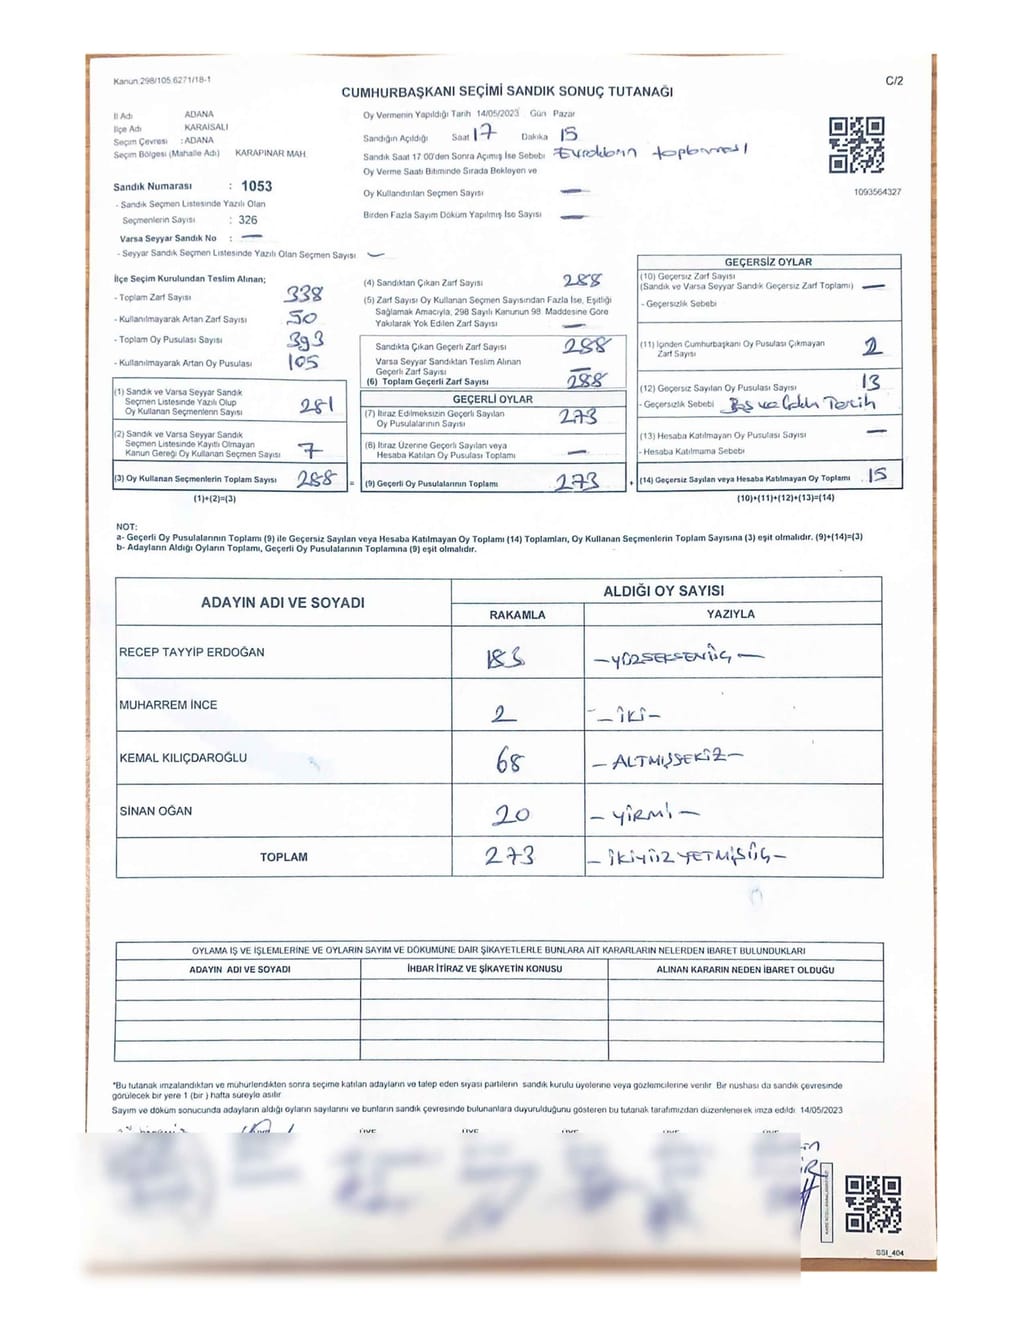 Kanun.298/105.6271/18-1
C/2
CUMHURBAŞKANI SEÇİMİ SANDIK SONUÇ TUTANAĞI
İl Adı ADANA
İlçe Adı KARAİSALI
Seçim Çevresi :ADANA
Seçim Bölgesi (Mahalle Adı) KARAPINAR MAH.
Sandık Numarası : 1053
- Sandık Seçmen Listesinde Yazılı Olan
Seçmenlerin Sayısı : 326
Varsa Seyyar Sandık No : —
- Seyyar Sandık Seçmen Listesinde Yazılı Olan Seçmen Sayısı —
Oy Vermenin Yapıldığı Tarih 14/05/2023 Gün Pazar
Sandığın Açıldığı Saat 17 Dakika 15
Sandık Saat 17:00'den Sonra Açımış İse Sebebi Evrakların toplanması
Oy Verme Saati Bitiminde Sırada Bekleyen ve
Oy Kullandırılan Seçmen Sayısı —
Birden Fazla Sayım Döküm Yapılmış İse Sayısı —
1093564327
İlçe Seçim Kurulundan Teslim Alınan;
- Toplam Zarf Sayısı 338
- Kullanılmayarak Artan Zarf Sayısı 50
- Toplam Oy Pusulası Sayısı 393
- Kullanılmayarak Artan Oy Pusulası 105
(1) Sandık ve Varsa Seyyar Sandık
Seçmen Listesinde Yazılı Olup
Oy Kullanan Seçmenlerin Sayısı 281
(2) Sandık ve Varsa Seyyar Sandık
Seçmen Listesinde Kayıtlı Olmayan
Kanun Gereği Oy Kullanan Seçmen Sayısı 7
(3) Oy Kullanan Seçmenlerin Toplam Sayısı 288 =
(1)+(2)=(3)
(4) Sandıktan Çıkan Zarf Sayısı 288
(5) Zarf Sayısı Oy Kullanan Seçmen Sayısından Fazla İse, Eşitliği
Sağlamak Amacıyla, 298 Sayılı Kanunun 98. Maddesine Göre
Yakılarak Yok Edilen Zarf Sayısı —
Sandıkta Çıkan Geçerli Zarf Sayısı 288
Varsa Seyyar Sandıktan Teslim Alınan
Geçerli Zarf Sayısı —
(6) Toplam Geçerli Zarf Sayısı 288
GEÇERLİ OYLAR
(7) İtiraz Edilmeksizin Geçerli Sayılan
Oy Pusulalarının Sayısı 273
(8) İtiraz Üzerine Geçerli Sayılan veya
Hesaba Katılan Oy Pusulası Toplamı —
(9) Geçerli Oy Pusulalarının Toplamı 273 +
GEÇERSİZ OYLAR
(10) Geçersiz Zarf Sayısı
(Sandık ve Varsa Seyyar Sandık Geçersiz Zarf Toplamı) —
- Geçersizlik Sebebi
(11) İçinden Cumhurbaşkanı Oy Pusulası Çıkmayan
Zarf Sayısı 2
(12) Geçersiz Sayılan Oy Pusulası Sayısı 13
- Geçersizlik Sebebi Boş ve Tercih
(13) Hesaba Katılmayan Oy Pusulası Sayısı —
- Hesaba Katılmama Sebebi
(14) Geçersiz Sayılan veya Hesaba Katılmayan Oy Toplamı 15
(10)+(11)+(12)+(13)=(14)
NOT:
a- Geçerli Oy Pusulalarının Toplamı (9) ile Geçersiz Sayılan veya Hesaba Katılmayan Oy Toplamı (14) Toplamları, Oy Kullanan Seçmenlerin Toplam Sayısına (3) eşit olmalıdır. (9)+(14)=(3)
b- Adayların Aldığı Oyların Toplamı, Geçerli Oy Pusulalarının Toplamına (9) eşit olmalıdır.
ADAYIN ADI VE SOYADI
ALDIĞI OY SAYISI
RAKAMLA YAZIYLA
RECEP TAYYİP ERDOĞAN 183 —YÜZSEKSENÜÇ—
MUHARREM İNCE 2 —İKİ—
KEMAL KILIÇDAROĞLU 68 —ALTMIŞSEKİZ—
SİNAN OĞAN 20 —YİRMİ—
TOPLAM 273 —İKİYÜZYETMİŞÜÇ—
OYLAMA İŞ VE İŞLEMLERİNE VE OYLARIN SAYIM VE DÖKÜMÜNE DAİR ŞİKAYETLERLE BUNLARA AİT KARARLARIN NELERDEN İBARET BULUNDUKLARI
ADAYIN ADI VE SOYADI İHBAR İTİRAZ VE ŞİKAYETİN KONUSU ALINAN KARARIN NEDEN İBARET OLDUĞU
*Bu tutanak imzalandıktan ve mühürlendikten sonra seçime katılan adayların ve talep eden siyasi partilerin sandık kurulu üyelerine veya gözlemcilerine verilir. Bir nüshası da sandık çevresinde
görülecek bir yere 1 (bir ) hafta süreyle asılır
Sayım ve döküm sonucunda adayların aldığı oyların sayılarını ve bunların sandık çevresinde bulunanlara duyurulduğunu gösteren bu tutanak tarafımızdan düzenlenerek imza edildi. 14/05/2023
SSI_404